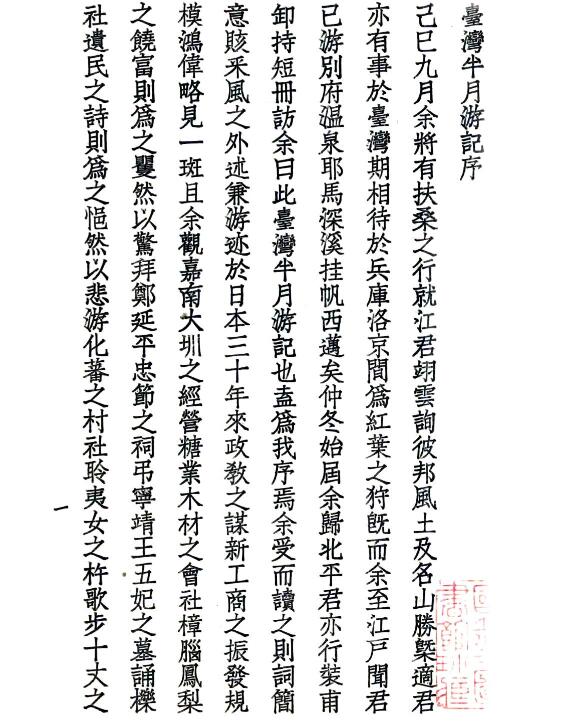 臺灣半月游記序
己巳九月余將有扶桑之行就江君翊雲詢彼邦風土及名山勝槩適君
亦有事於臺灣期相待於兵庫洛京間爲紅葉之狩旣而余至江戸聞君
已游別府溫泉耶馬深溪挂帆西邁矣仲冬始屆余歸北平君亦行裝甫
卸持短冊訪余曰此臺灣半月游記也盍爲我序焉余受而讀之則詞簡
意賅釆風之外述兼游迹於日本三十年來政敎之謀新工商之振發規
模鴻偉略見一斑且余觀嘉南大圳之經營糖業木材之會社樟腦鳳梨
之饒富則爲之矍然以驚拜鄭延平忠節之祠弔寧靖王五妃之墓誦櫟
社遺民之詩則爲之悒然以悲游化蕃之村社聆夷女之杵歌步十丈之
一